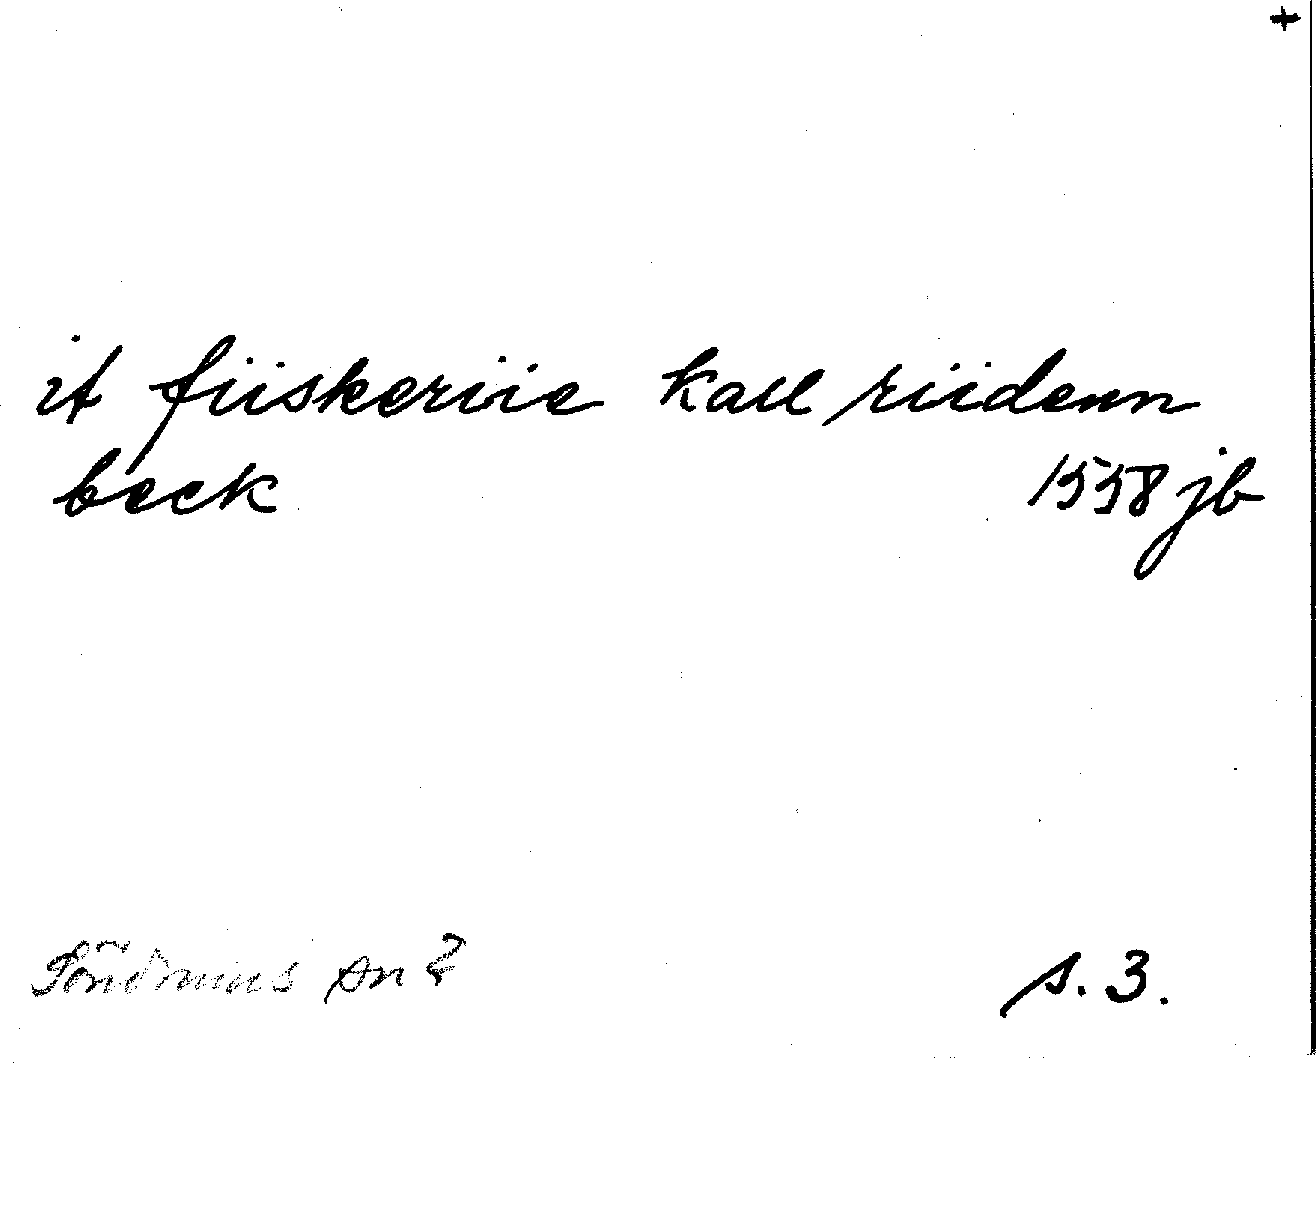 +
it fiiskeriie kall riidenn
beck 1558 jb
Söndrums sn ?
s. 3.